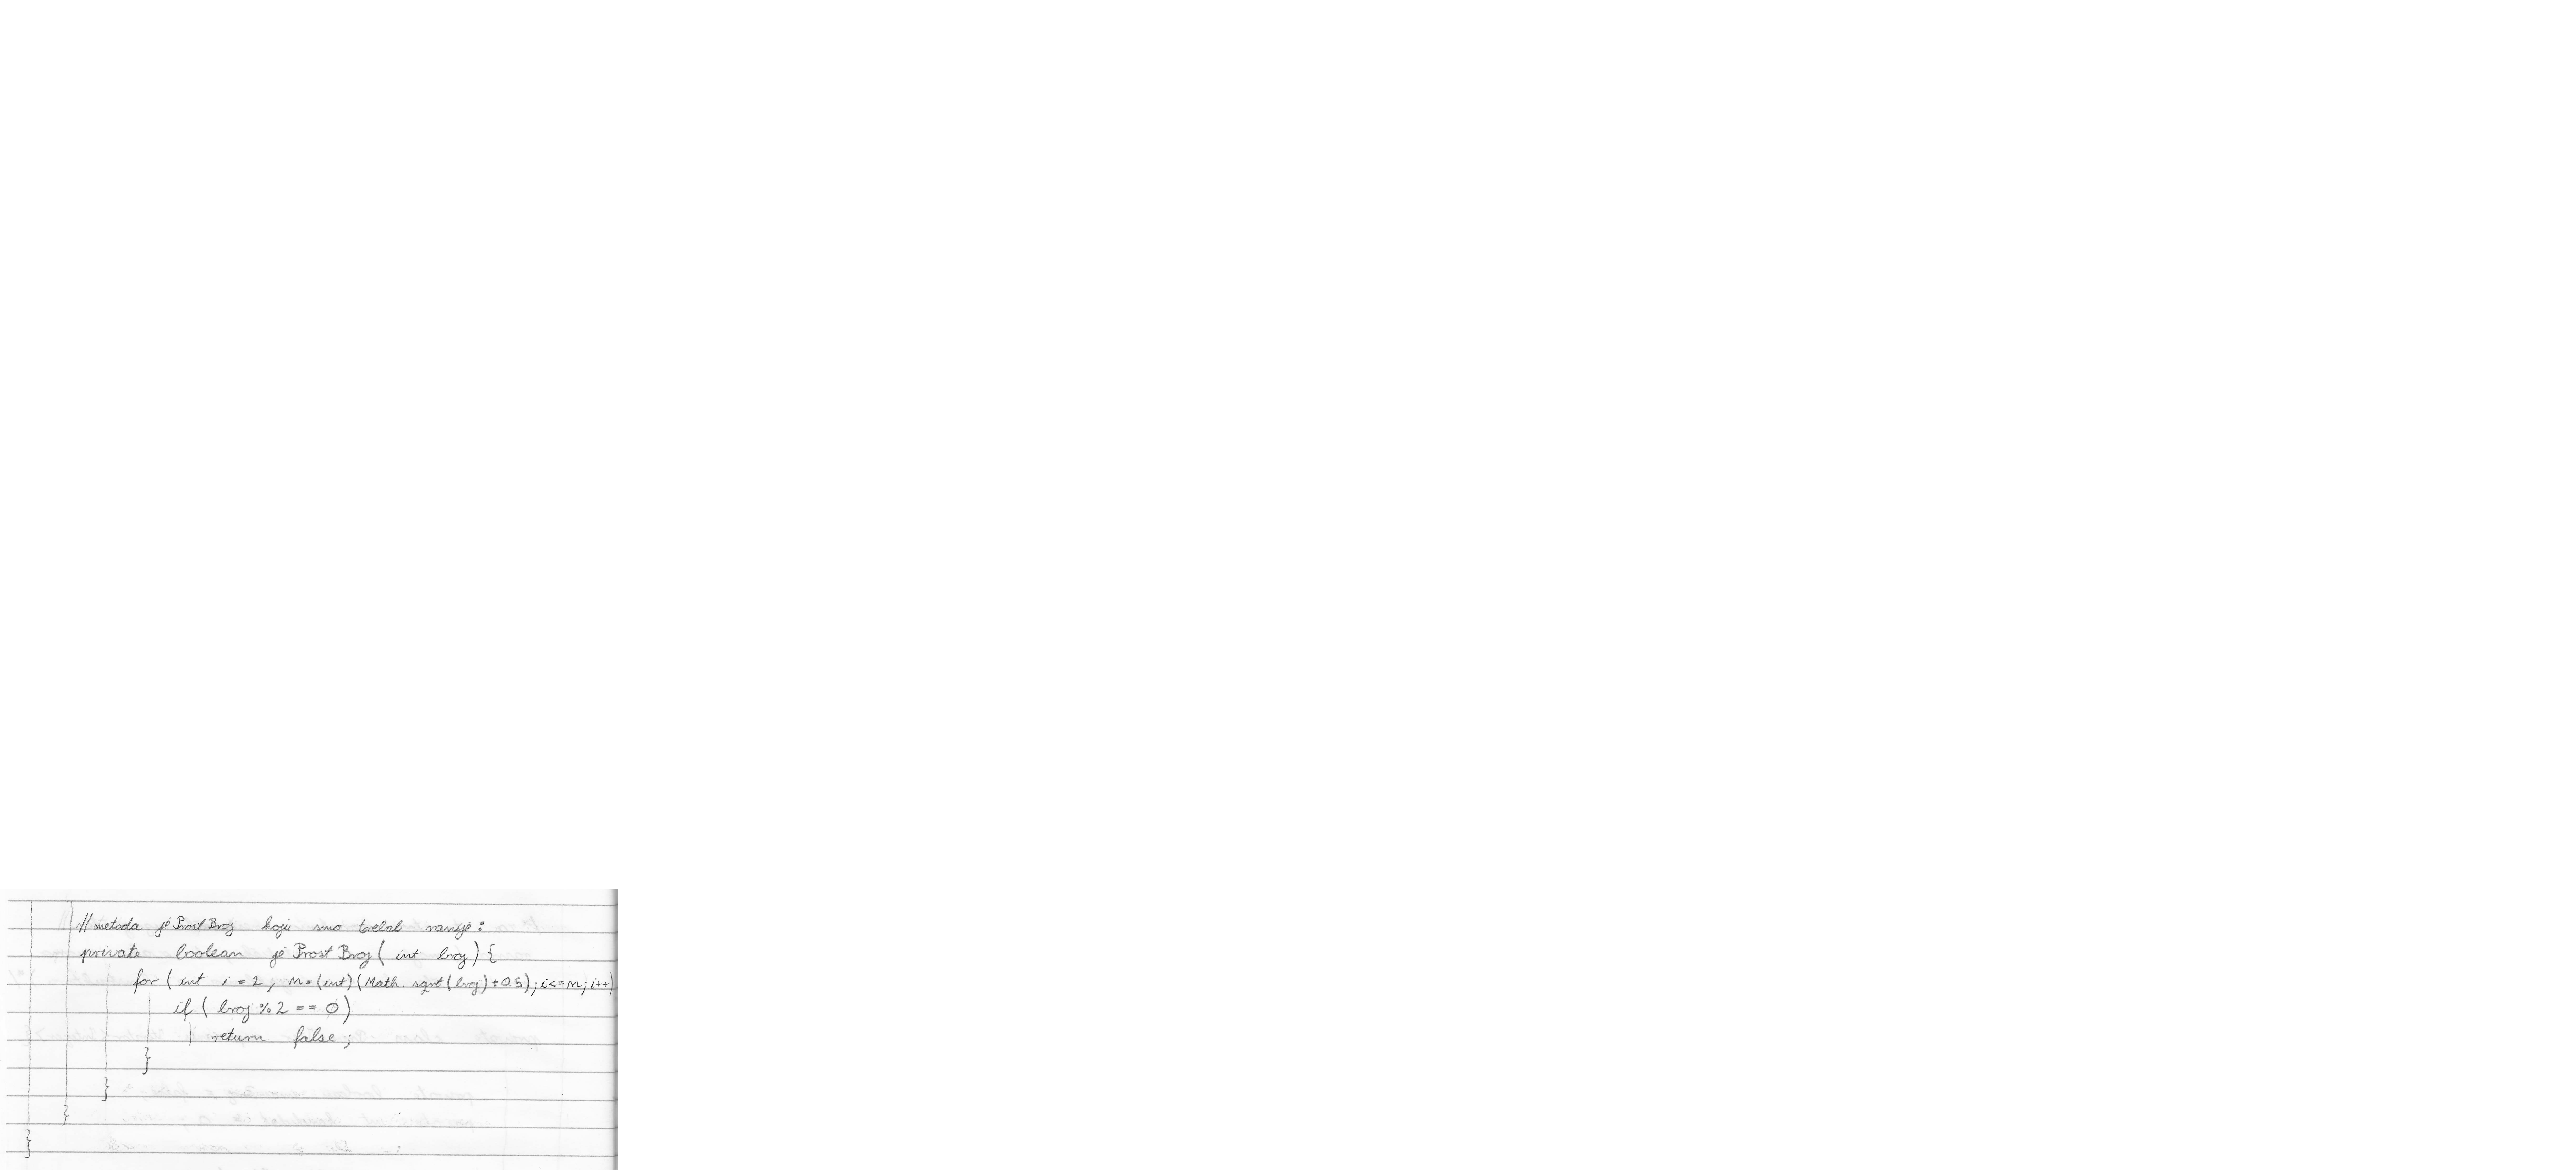 //metoda jeProstBroj koju smo trebali ranije:
private boolean jeProstBroj( int broj) {
for ( int i = 2, m=(int)(Math.sqrt(broj)+0.5); i<=m; i++)
if ( broj%2 == 0)
return false;
}
}
}
}